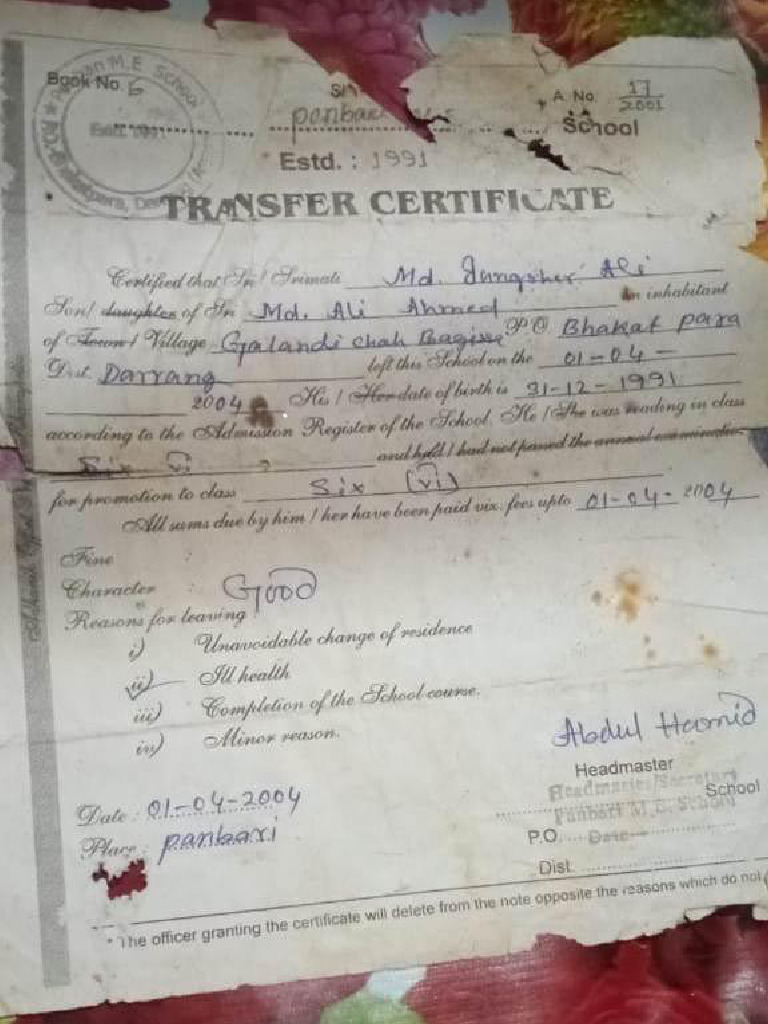 Book No. 6
A. No. 17/2001
School
Estd. : 1991
TRANSFER CERTIFICATE
Certified that Sri / Srimati Md. Ali
Son / daughter of Sri Md. Ali Ahmed An inhabitant
of Town / Village Galandi chah P.O. Bhakat para
Dist. Darrang left this School on the 01-04-
2004 His / Her date of birth is 31-12-1991
according to the Admission Register of the School. He / She was reading in class
Six and held / had not passed the annual
for promotion to class Six (vi)
All sums due by him / her have been paid viz. fees upto 01-04-2004
Fine
Character : Good
Reasons for leaving
i) Unavoidable change of residence
ii) Ill health
iii) Completion of the School course.
iv) Minor reason.
Abdul Hamid
Headmaster
Headmaster/Secretary
School
Panbari M.E. School
Date : 01-04-2004
P.O.
Place : panbari
Dist.
* The officer granting the certificate will delete from the note opposite the reasons which do not